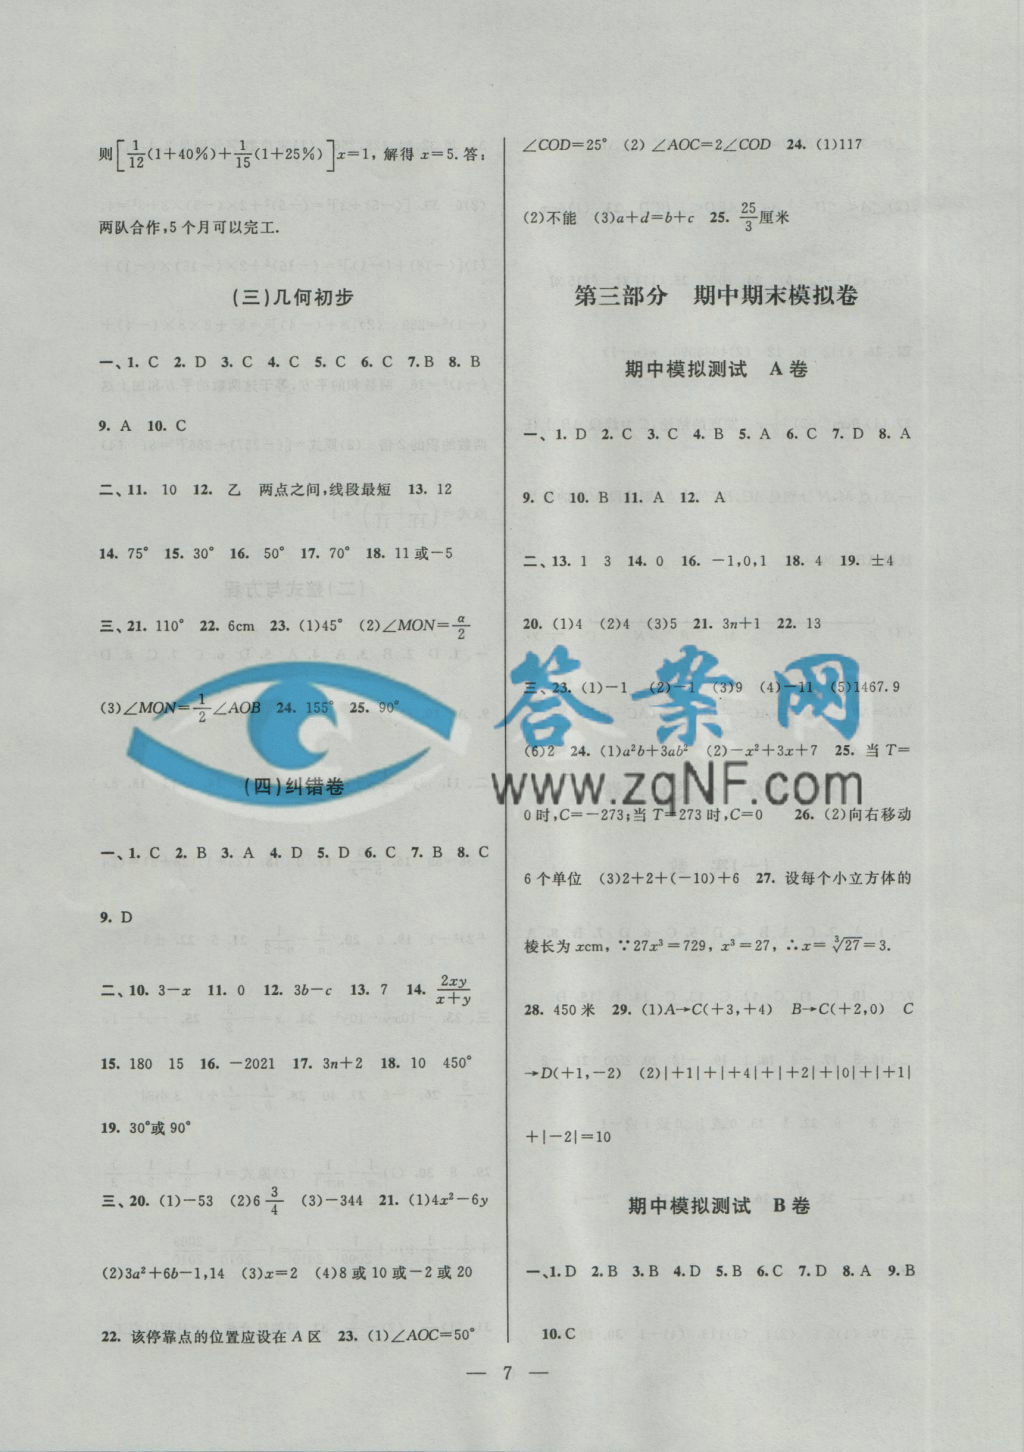 则[1/12(1+40%)+1/15(1+25%)]x=1,解得 x=5.答:
两队合作,5 个月可以完工.
(三)几何初步
一、1. C 2. D 3. C 4. C 5. C 6. C 7. B 8. B
9. A 10. C
二、11. 10 12. 乙 两点之间,线段最短 13. 12
14. 75° 15. 30° 16. 50° 17. 70° 18. 11或-5
三、21. 110° 22. 6cm 23. (1)45° (2)∠MON=α/2
(3)∠MON=1/2∠AOB 24. 155° 25. 90°
(四)纠错卷
一、1. C 2. B 3. A 4. D 5. D 6. C 7. B 8. C
9. D
二、10. 3-x 11. 0 12. 3b-c 13. 7 14. 2xy/(x+y)
15. 180 15 16. -2021 17. 3n+2 18. 10 450°
19. 30°或 90°
三、20. (1)-53 (2)6 3/4 (3)-344 21. (1)4x²-6y
(2)3a²+6b-1,14 (3)x=2 (4)8 或 10 或-2 或 20
22. 该停靠点的位置应设在 A 区 23. (1)∠AOC=50°
∠COD=25° (2)∠AOC=2∠COD 24. (1)117
(2)不能 (3)a+d=b+c 25. 25/3厘米
第三部分 期中期末模拟卷
期中模拟测试 A 卷
一、1. D 2. C 3. C 4. B 5. A 6. C 7. D 8. A
9. C 10. B 11. A 12. A
二、13. 1 3 14. 0 16. -1,0,1 18. 4 19. ±4
20. (1)4 (2)4 (3)5 21. 3n+1 22. 13
三、23. (1)-1 (2)-1 (3)9 (4)-11 (5)1467.9
(6)2 24. (1)a²b+3ab² (2)-x²+3x+7 25. 当 T=
0时,C=-273;当 T=273 时,C=0 26. (2)向右移动
6 个单位 (3)2+2+(-10)+6 27. 设每个小立方体的
棱长为 xcm,∵27x³=729,x³=27,∴x=∛27=3.
28. 450 米 29. (1)A→C(+3,+4) B→C(+2,0) C
→D(+1,-2) (2)|+1|+|+4|+|+2|+|0|+|+1|
+|-2|=10
期中模拟测试 B 卷
一、1. D 2. B 3. B 4. D 5. B 6. C 7. D 8. A 9. B
10. C
— 7 —
答案网
www.zqNF.com